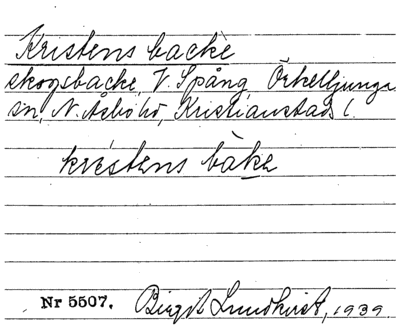 Kristens backe
skogsbacke, V. Spång, Örkelljunga
sn, N. Åsbo hd, Kristianstads l.
kréstens bàke
Nr 5507. Birgit Lundkvist, 1939.